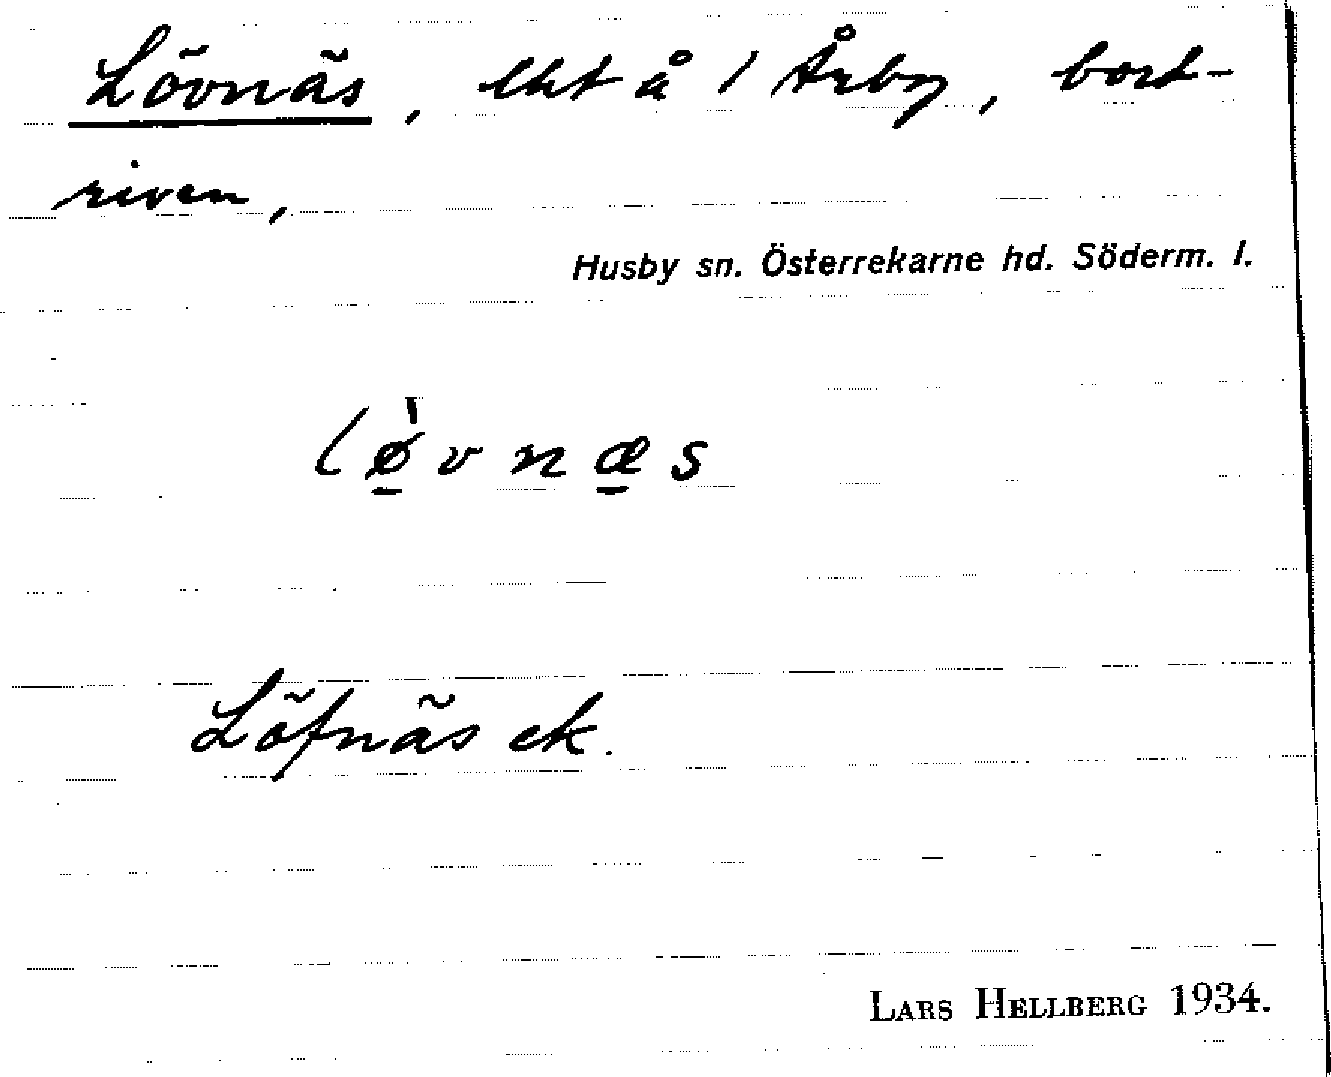 Lövnäs, lht å 1 Årby, bort-
riven,
Husby sn. Österrekarne hd. Söderm. l.
lø̠̀vnæ̠s
Löfnäs ek.
LARS HELLBERG 1934.